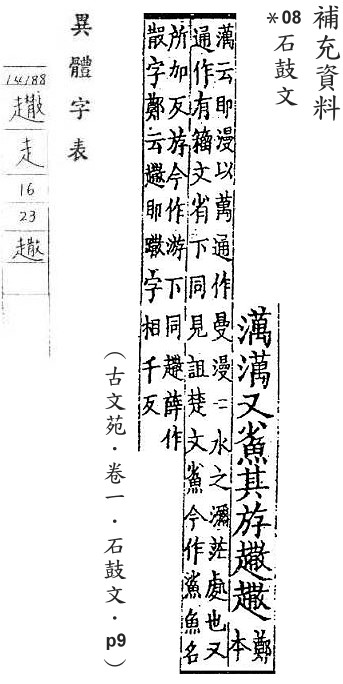 補充資料
*08 石鼓文
澫澫又其斿
鄭
本
澫云即漫以萬通作曼漫二水之瀰茫處也又
通作有籀文省下同見詛楚文今作鯊魚名
所加反斿今作游下同薛作
散字鄭云即字相千反
(古文苑.卷一.石鼓文.p9)
異體字表
14188
走
16
23